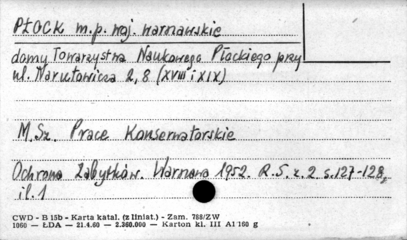 PŁOCK m.p. woj. warszawskie
domy Towarzystwa Naukowego Płockiego przy
ul. Narutowicza 2, 8 (XVIII i XIX)
M.Sz. Prace Konserwatorskie
Ochrona Zabytków. Warszawa 1952. R.5. z. 2 s. 127-128,
il. 1
CWD - B 15b - Karta katal. (z liniat.) - Zam. 788/ZW
1060 — ŁDA — 21.4.60 — 2.360.000 — Karton kl. III A1 160 g